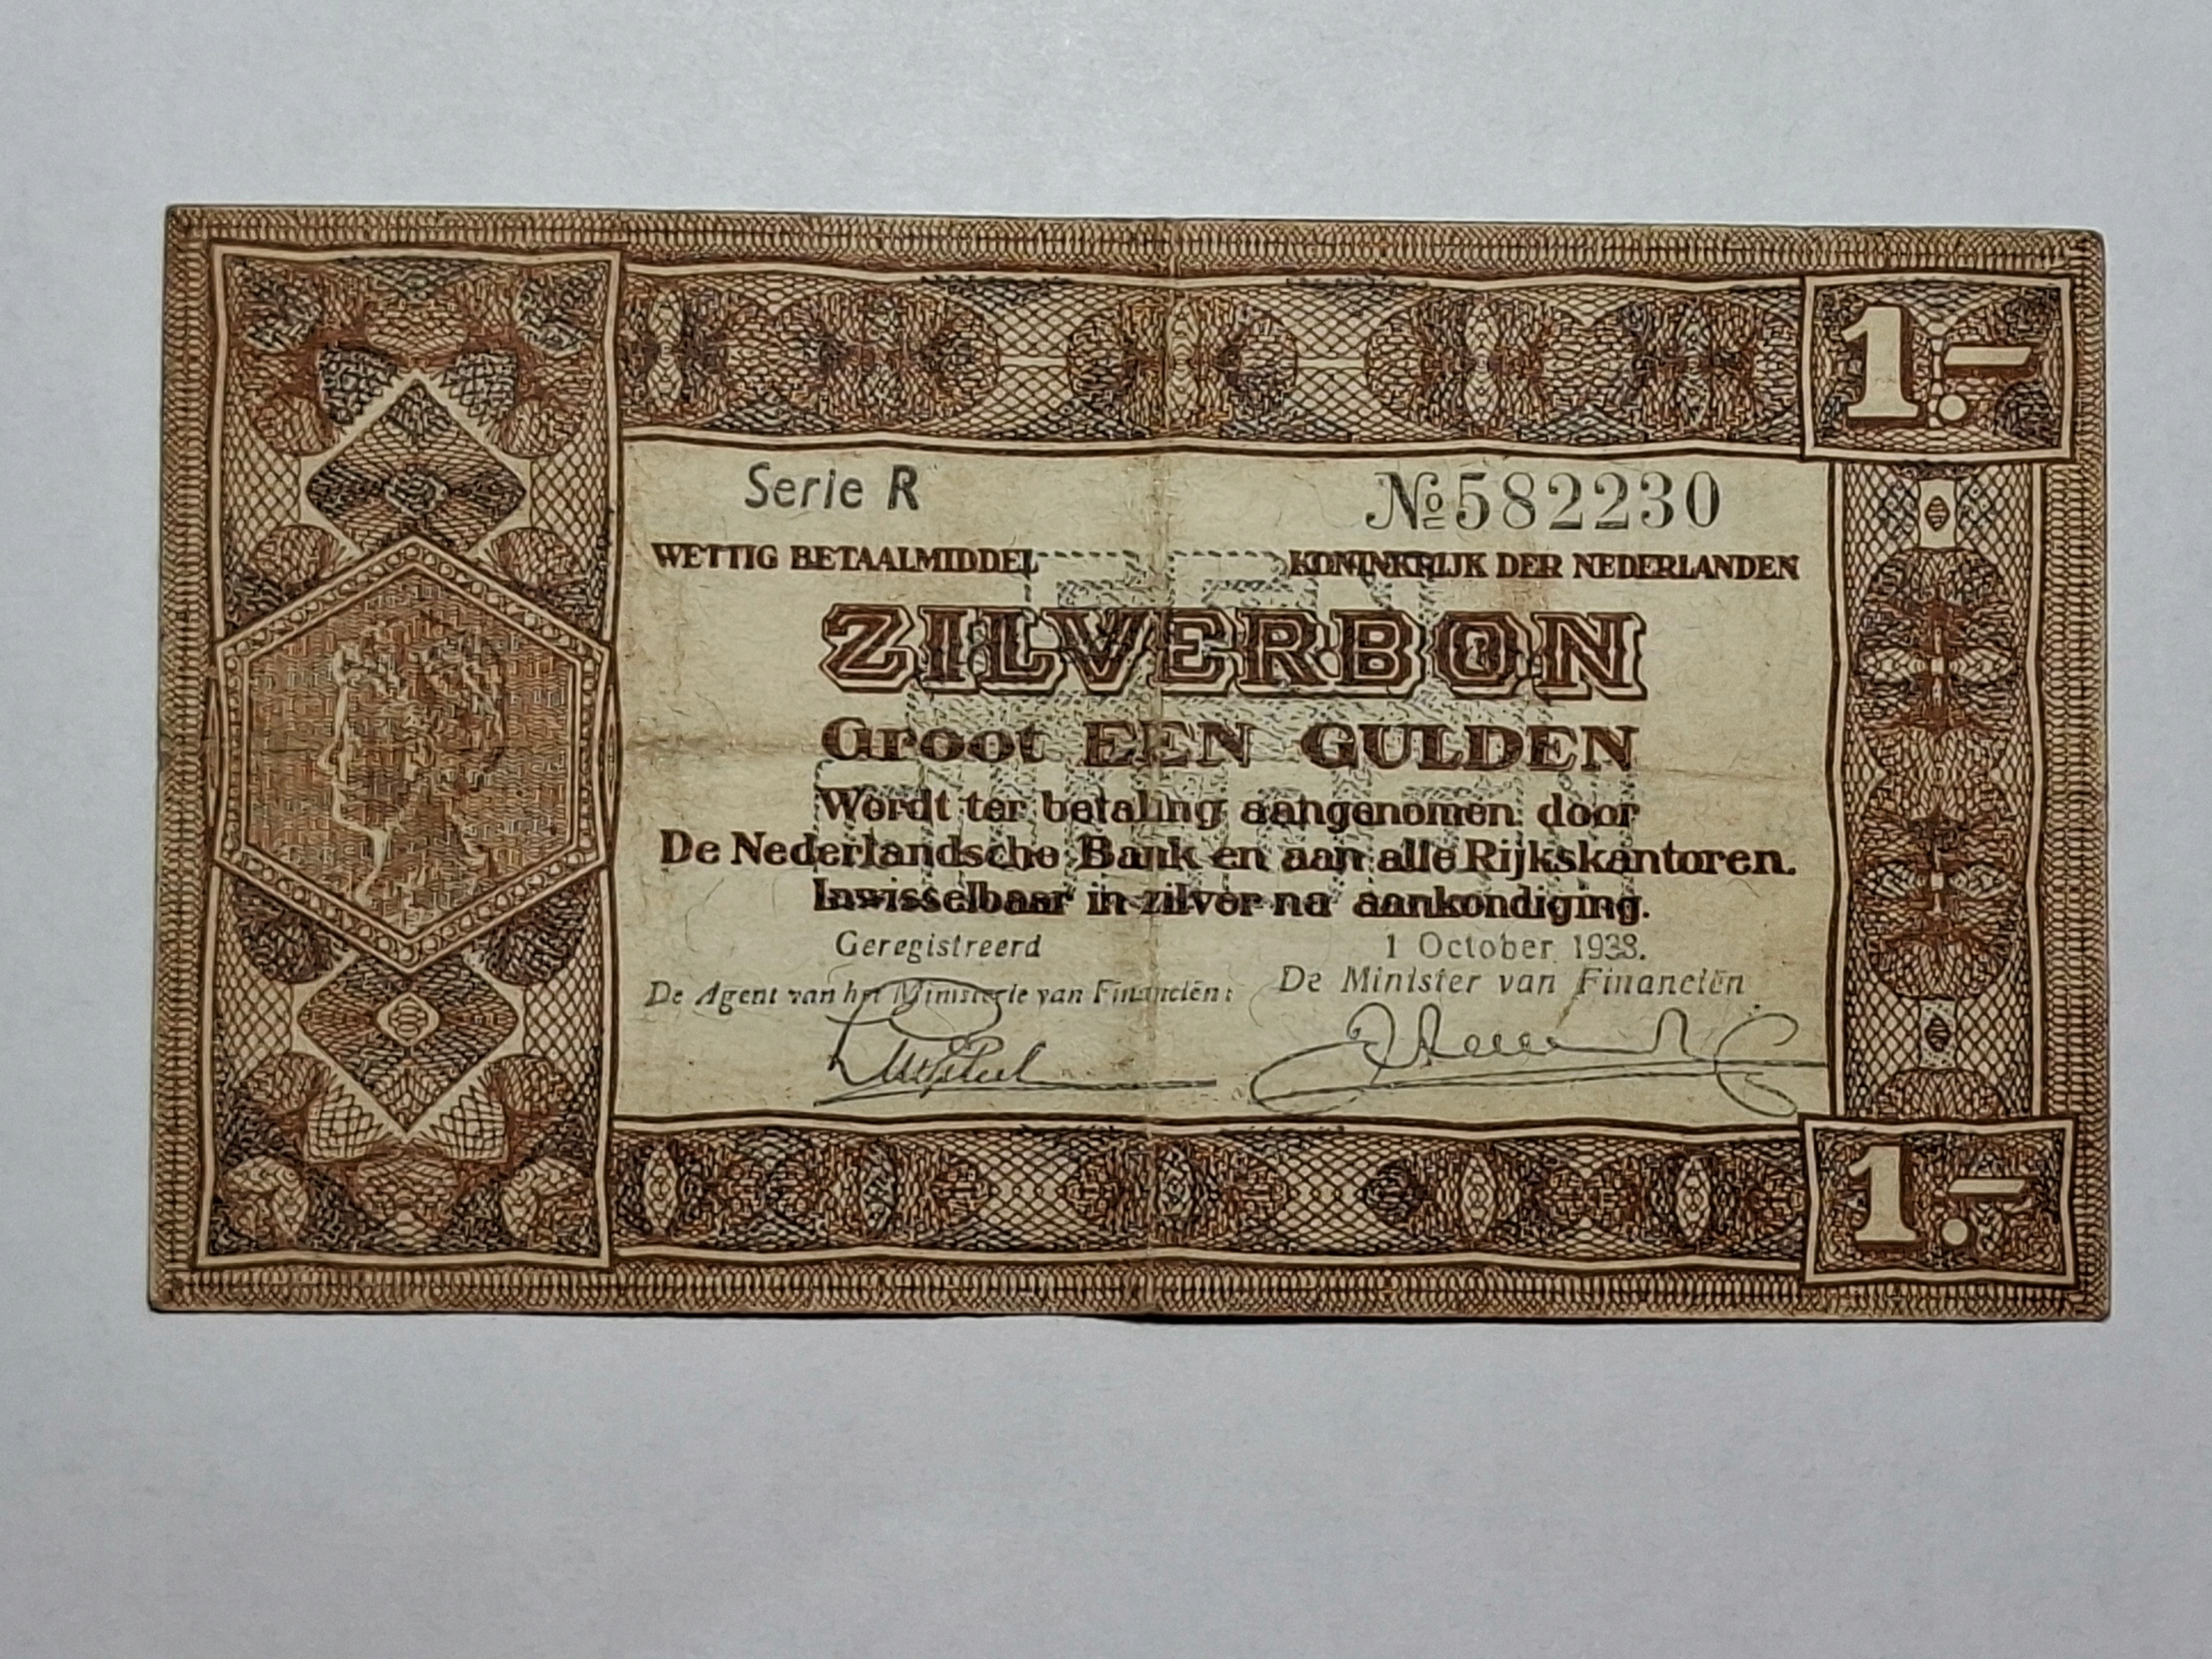 1.-
Serie R № 582230
WETTIG BETAALMIDDEL KONINKRIJK DER NEDERLANDEN
ZILVERBON
Groot EEN GULDEN
Wordt ter betaling aangenomen door
De Nederlandsche Bank en aan alle Rijkskantoren.
Inwisselbaar in zilver na aankondiging.
Geregistreerd 1 October 1938.
De Agent van het Ministerie van Financiën: De Minister van Financiën
1.-